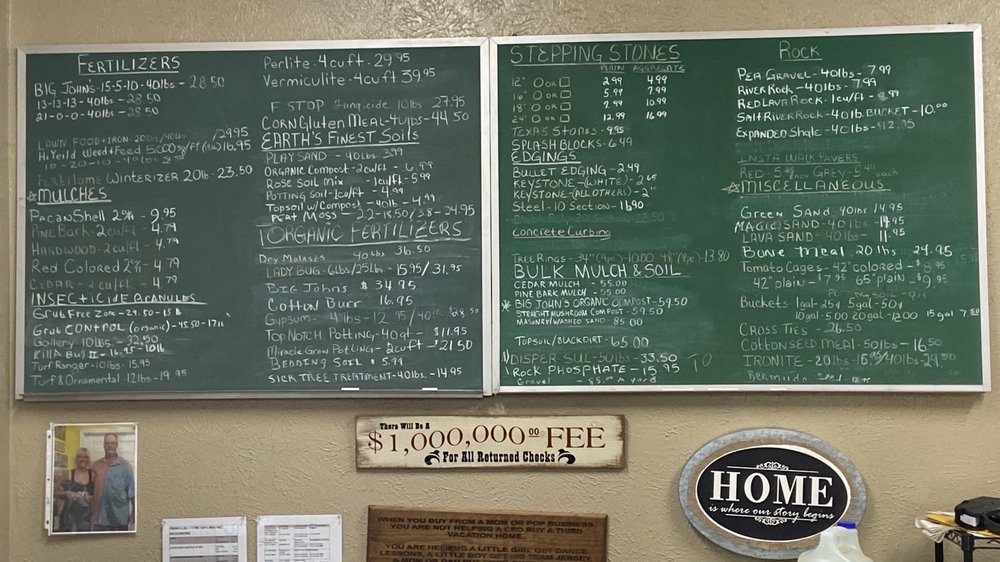 FERTILIZERS
BIG JOHN'S 15-5-10-40lbs - 28.50
13-13-13 - 40lbs - 28.50
21-0-0 - 40lbs - 28.50
LAWN FOOD + IRON - 20lbs/40lbs /29.95
Hi Yield Weed + Feed 5,000 sq/ft 16.95
10-20-10-40lbs
Fertilome WINTERIZER 20lb - 23.50
MULCHES
PecanShell 2cu/ft - 9.95
PINE Bark - 2cu/ft - 4.79
HARDWOOD - 2cu/ft - 4.79
Red Colored 2cu/ft - 4.79
CEDAR - 2 cu/ft - 4.79
INSECTICIDE GRANULES
GRUB FREE ZONE - 29.50 - 15 lb
GRUB CONTROL (organic) - 45.50 - 17lb
Gollery 10lbs - 32.50
Kill A Bug II - 16.95 - 10lb
Turf Ranger - 10lbs - 15.95
Turf & Ornamental - 12lbs - 19.95
Perlite - 4cuft - 29.95
Vermiculite - 4cuft 39.95
F STOP Fungicide 10lbs 27.95
CORN Gluten MEAL - 40lbs - 44.50
EARTH'S FINEST SOILS
PLAY SAND - 40lbs 3.99
ORGANIC COMPOST - 2cu/ft - 6.99
ROSE SOIL MIX - 1cu/ft - 5.99
POTTING SOIL - 1cu/ft - 4.99
TOPSOIL w/COMPOST - 40lb - 4.99
PEAT MOSS - 2.2 - 15.50 / 3.8 - 24.95
ORGANIC FERTILIZERS
Dry Molases 40 lbs 36.50
LADY BUG - 6lbs/25lbs - 15.95 / 31.95
BIG JOHNS $ 34.95
COTTON BURR 16.95
Gypsum - 4lbs - 12.95 / 40lbs $28.50
TOP NOTCH POTTING - 40qt - $11.95
Miracle Grow POTTING - 2cuft - $21.50
BEDDING SOIL $5.99
SICK TREE TREATMENT - 40lbs - 14.95
STEPPING STONES
PLAIN AGGREGATE
12" O OR □ 2.99 4.99
16" O OR □ 5.99 7.99
18" O OR □ 7.99 10.99
24" O OR □ 12.99 16.99
TEXAS STONES - 9.95
SPLASH BLOCKS - 6.49
EDGINGS
BULLET EDGING - 2.49
KEYSTONE - (WHITE) - 2.65
KEYSTONE - (ALL OTHERS) - 2
Steel - 10 Section - 16.90
Concrete Curbing
TREE RINGS - 34" (4pc) - 10.00 48" (8pc) - 13.80
BULK MULCH & SOIL
CEDAR MULCH - 55.00
PINE BARK MULCH - 55.00
BIG JOHN'S ORGANIC COMPOST - 59.50
STRAIGHT MUSHROOM COMPOST - 59.50
MASONRY WASHED SAND - 85.00
TOPSOIL/BLACK DIRT - 65.00
DISPER SUL - 50lbs - 33.50 TO
ROCK PHOSPHATE - 15.95
Gravel - 85.00 A yard
ROCK
PEA GRAVEL - 40lbs - 7.99
RIVER ROCK - 40lbs - 7.99
RED LAVA ROCK - 1cu/ft - 8.99
SALT RIVER ROCK - 40lb. BUCKET - 10.00
EXPANDED Shale - 40lbs $12.95
INSTA WALK PAVERS
RED - 5.95 GREY - 5.40 each
MISCELLANEOUS
GREEN SAND 40lbs 14.95
MAGIC SAND - 40lbs - 14.95
LAVA SAND - 40lbs - 11.95
BONE MEAL 20 lbs 24.95
Tomato Cages - 42" colored - $8.95
42" plain - $7.95 65" plain - $9.95
Buckets 1gal - 25¢ 5gal - 50¢
10gal - 5.00 20gal - 12.00 15 gal 7.50
CROSS TIES - 26.50
COTTONSEED MEAL - 50lbs - 16.50
IRONITE - 20lbs - 15.95 / 40lbs - 29.50
Bermuda Seed
There Will Be A
$1,000,000.00 FEE
For All Returned Checks
HOME
is where our story begins
WHEN YOU BUY FROM A MOM OR POP BUSINESS,
YOU ARE NOT HELPING A CEO BUY A THIRD
VACATION HOME.
YOU ARE HELPING A LITTLE GIRL GET DANCE
LESSONS, A LITTLE BOY GET HIS TEAM JERSEY,